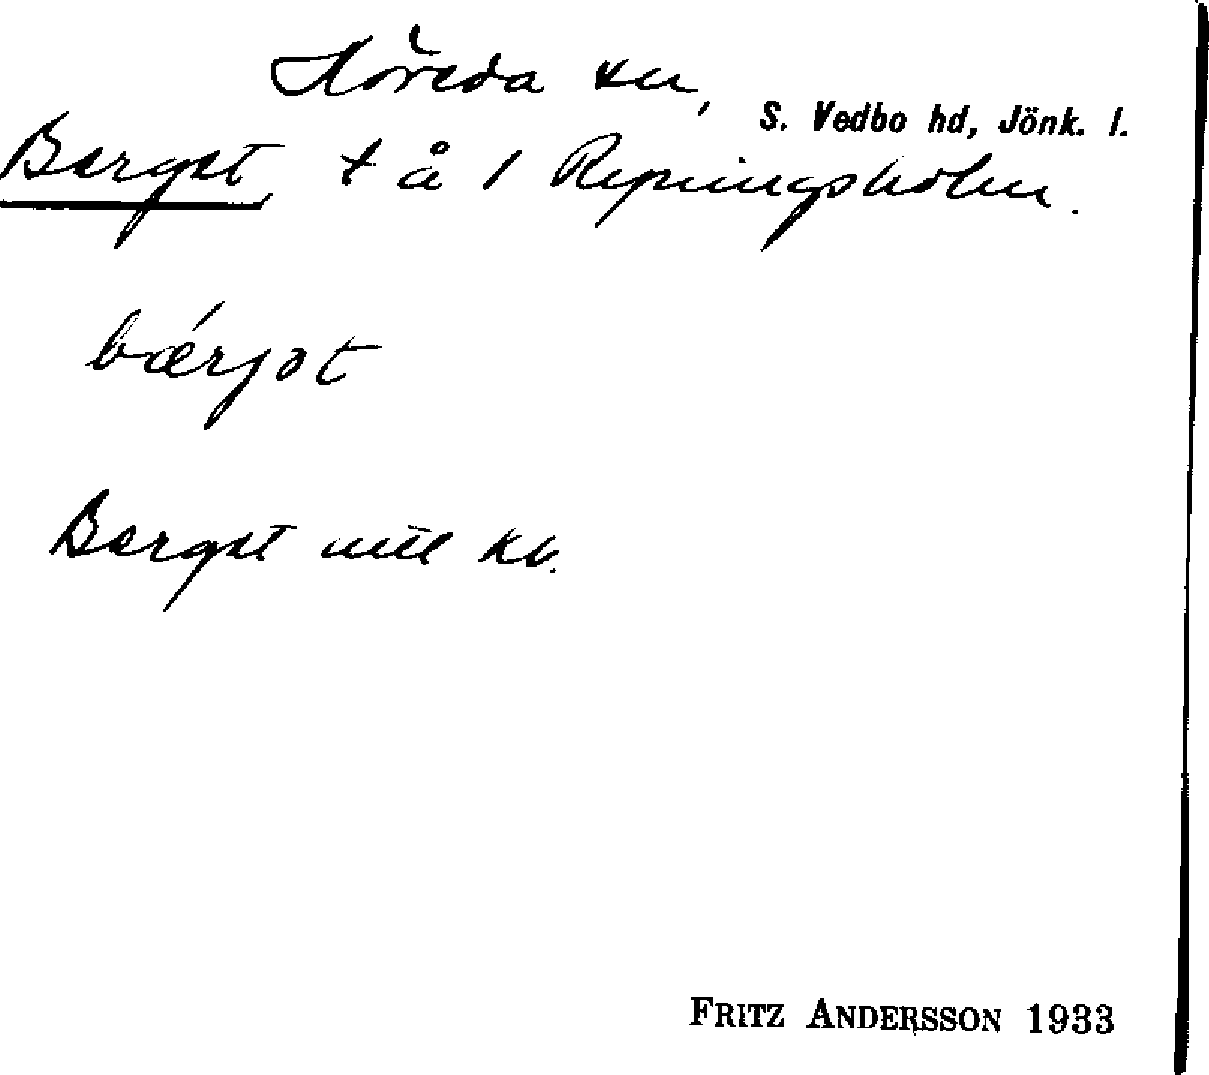 Höreda sn,
S. Vedbo hd, Jönk. l.
Berget, t å 1 Repningsholm.
bǽrjət
Berget mtl kb.
FRITZ ANDERSSON 1933